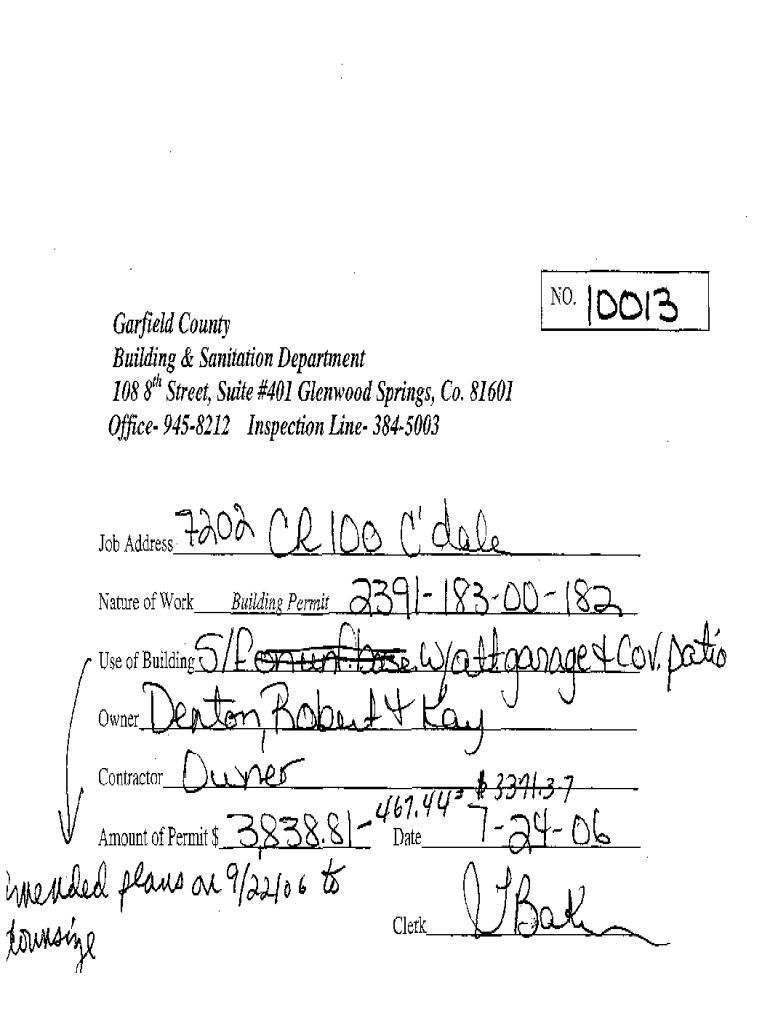 NO. 10013
Garfield County
Building & Sanitation Department
108 8th Street, Suite #401 Glenwood Springs, Co. 81601
Office- 945-8212 Inspection Line- 384-5003
Job Address 7202 CR 100 C'dale
Nature of Work Building Permit 2391-183-00-182
Use of Building S/F w/att garage & Cov. patio
Owner Denton, Robert & Kay
Contractor Owner
467.44= $ 3371.37
Amount of Permit $ 3,838.81- Date 7-24-06
amended plans on 9/22/06 to
downsize
Clerk